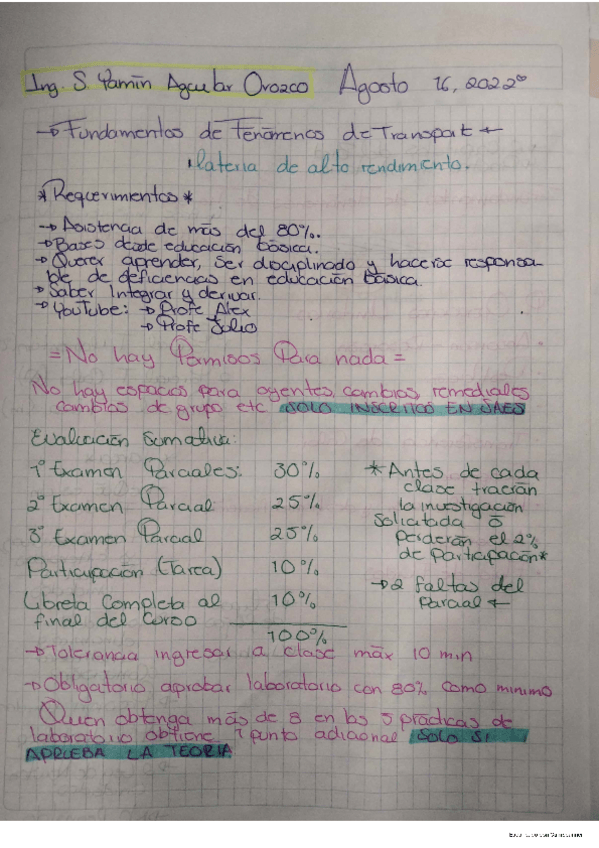 Ing. S. Yamín Aguilar Orozco Agosto 16, 2022
→ Fundamentos de Fenómenos de Transport ←
Materia de alto rendimiento.
* Requerimientos *
→ Asistencia de más del 80%.
→ Bases desde educación básica.
→ Querer aprender, ser disciplinado y hacerse responsa-
ble de deficiencias en educación básica.
→ Saber Integrar y derivar.
→ YouTube: → Profe Alex
→ Profe Julio
= No hay Permisos Para nada =
No hay espacios para oyentes, cambios remediales
cambios de grupo etc SOLO INSCRITOS EN SAES
Evaluación Sumativa:
1° Examen Parciales: 30%
2° Examen Parcial 25%
3° Examen Parcial 25%
Participación (Tarea) 10%
Libreta Completa al
final del Curso 10%
100%
* Antes de cada
clase traerán
la investigación
solicitada ō
perderán el 2%
de participación *
→ 2 faltas del
Parcial ←
→ Tolerancia ingresar a clase máx 10 min
→ Obligatorio aprobar laboratorio con 80% como mínimo
Quien obtenga más de 8 en las 5 prácticas de
laboratorio obtiene 1 punto adicional SOLO SI
APRUEBA LA TEORIA